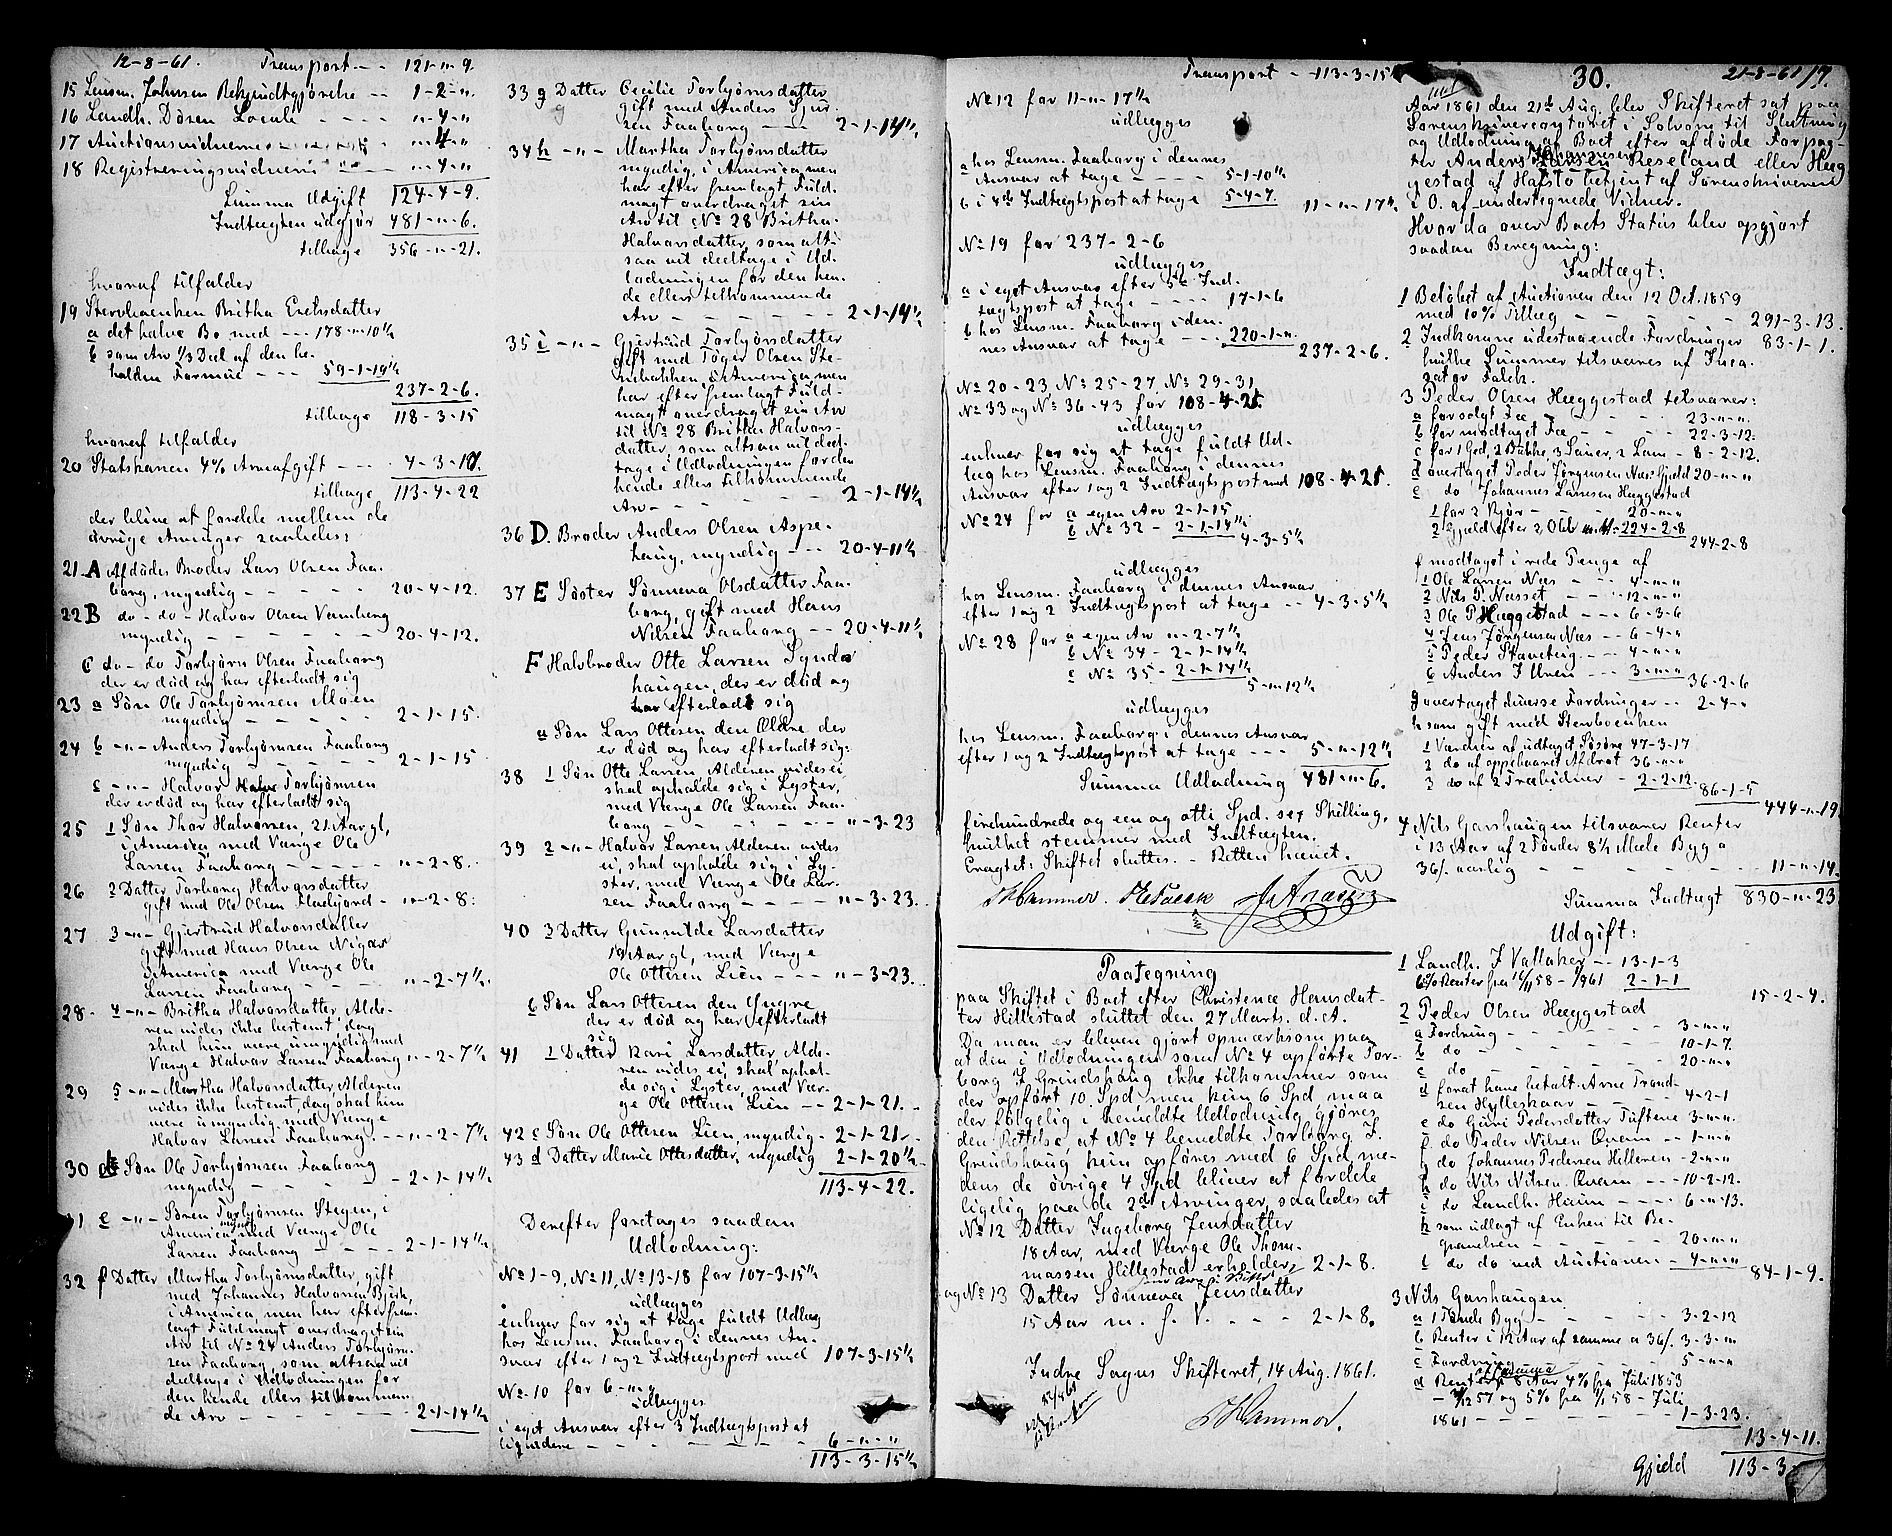 12-8-61. Transport -- 121-"-9.
15 Lensm. Johnsen Bekjendtgjørelse -- 1-2-".
16 Landh. Dösen Locale - - - - "-4-"
17 Auctionsvidnerne - - - - "-4-"
18 Registreringsvidnerne - - "-4-"
Summa Udgift 124-4-9.
Indtægten udgjør 481-"-6.
tilbage 356-"-21.
hvoraf tilfalder
19 Stervboenken Britha Erichsdatter
a det halve Bo med --- 178-"-10½
b som Arv ⅓ Deel af den be-
holdne Formue --- 59-1-19½
237-2-6.
tilbage 118-3-15
hvoraf tilfalder
20 Statskassen 4% Arveafgift --- 4-3-17.
tilbage 113-4-22
der blive at fordele mellem de
øvrige Arvinger saaledes:
21 A Afdødes Broder Lars Olsen Faa-
borg, myndig - - - - - 20-4-12.
22 B do - do - Halvor Olsen Vamberg
myndig - - - - - - 20-4-12.
C do - do Torbjørn Olsen Faaborg
der er död og har efterladt sig
23 a Sön Ole Torbjørnsen Moen
myndig - - - - - 2-1-15.
24 b -"- Anders Torbjørnsen Faaborg
myndig - - - - - 2-1-15
c -"- Halvor Torbjørnsen
der er död og har efterladt sig
25 1 Sön Thor Halvorsen, 21 Aar gl,
i America med Værge Ole
Larsen Faaborg - - - - "-2-8.
26 2 Datter Torborg Halvorsdatter
gift med Ole Olsen Fladgjord - "-2-8.
27 3 -"- Gjertrud Halvorsdatter
gift med Hans Olsen Nigar
i America med Værge Ole
Larsen Faaborg - - - "-2-7½.
28 - 4 -"- Britha Halvorsdatter, Alde-
ren vides ikke bestemt, dog
skal hun være umyndig med
Værge Halvor Larsen Faaborg "-2-7½
29 5 -"- Martha Halvorsdatter, Alderen
vides ikke bestemt, dog skal hun
være umyndig med Værge
Halvor Larsen Faaborg. -- "-2-7½
30 d Sön Ole Torbjørnsen Faaborg
myndig - - - - - 2-1-14½
31 e -"- Sören Torbjørnsen Stegen, i
America med Værge Ole
Larsen Faaborg - - - - 2-1-14½
32 f Datter Martha Torbjørnsdatter, gift
med Johannes Halvorsen Björk,
i America, men har efter frem-
lagt Fuldmagt overdraget sin
Arv til No 24 Anders Torbjørn-
sen Faaborg, som altsaa vil
deeltage i Udlodningen for
den hende ellers tilkommen-
de Arv - - - - - - 2-1-14½
33 g Datter Cecilie Torbjørnsdatter
gift med Anders Sjur-
sen Faaborg - - - 2-1-14½
34 h -"- Martha Torbjørnsdatter
myndig, i America, men
har efter fremlagt Fuld-
magt overdraget sin
Arv til No 28 Britha
Halvorsdatter, som alt-
saa vil deeltage i Ud-
lodningen for den hen-
de ellers tilkommende
Arv - - - - - - 2-1-14½
35 i -"- Gjertrud Torbjørnsdatter
gift med Töger Olsen Ste-
nebakken, i America, men
har efter fremlagt Fuld-
magt overdraget sin Arv
til No 28 Britha Halvors-
datter, som altsaa vil deel-
tage i Udlodningen for den
hende ellers tilkommende
Arv - - - - - - 2-1-14½
36 D. Broder Anders Olsen Aspe-
haug, myndig - - - 20-4-11½
37 E Söster Sönneva Olsdatter Faa-
borg, gift med Hans
Nilsen Faaborg -- 20-4-11½
F Halvbroder Otte Larsen Synda
haugen, der er död og
har efterladt sig
a Sön Lars Ottesen den Ældre der
er död og har efterladt sig:
38 1 Sön Otte Larsen, Alderen vides ei,
skal opholde sig i Lyster,
med Værge Ole Larsen Faa-
borg - - - - - - "-3-23
39 2 -"- Halvor Larsen Alderen vides
ei, skal opholde sig i Ly-
ster, med Værge Ole Lar-
sen Faaborg - - - - "-3-23.
40 3 Datter Gunnilde Larsdatter
19 Aar gl, med Værge
Ole Ottesen Lien - - - "-3-23.
b Sön Lars Ottesen den Yngre
der er död og har efterladt
sig
41 1 Datter Kari Larsdatter, Alde-
ren vides ei, skal ophol-
de sig i Lyster, med Vær-
ge Ole Ottesen Lien -- 2-1-21.
42 c Sön Ole Ottesen Lien, myndig - 2-1-21.
43 d Datter Marie Ottesdatter, myndig 2-1-20½
113-4-22.
Derefter foretages saadan
Udlodning:
No 1-9, No 11, No 13-18 for 107-3-15½
udlægges
enhver for sig at tage fuldt Udlæg
hos Lensm. Faaborg i dennes An-
svar efter 1 og 2 Indtægtspost med 107-3-15½
No 10 for 6-"-"
udlægges
i eget Ansvar efter 3 Indtægtspost at
liqvidere - - - - - - - 6-"-"
113-3-15½
Transport - 113-3-15½
No 12 for 11-"-17½
udlægges
a hos Lensm. Faaborg i dennes
Ansvar at tage - - - - 5-1-10½
b i 4de Indtægtspost at tage 5-4-7.
11-"-17½
No 19 for 237-2-6
udlægges
a i eget Ansvar efter 5te Ind-
tægtspost at tage - - - - 17-1-6
b hos Lensm. Faaborg i den-
nes Ansvar at tage - - - 220-1-".
237-2-6.
No 20-23, No 25-27, No 29-31,
No 33 og No 36-43 for 108-4-25.
udlægges
enhver for sig at tage fuldt Ud-
læg hos Lensm. Faaborg i dennes
Ansvar efter 1 og 2 Indtægtspost med 108-4-25.
No 24 for a egen Arv 2-1-15
b No 32 - 2-1-14½
4-3-5½
udlægges
hos Lensm. Faaborg i dennes Ansvar
efter 1 og 2 Indtægtspost at tage -- 4-3-5½
No 28 for a egen Arv "-2-7½
b No 34 - 2-1-14½
c No 35 - 2-1-14½
5-"-12½
udlægges
hos Lensm. Faaborg i dennes Ansvar
efter 1 og 2 Indtægtspost at tage - - - 5-"-12½
Summa Udlodning 481-"-6.
firehundrede og een og otti Spd. sex Skilling,
hvilket stemmer med Indtægten.
Eragtet: Skiftet sluttes. - Retten hævet.
Hammer.
Paategning
paa Skiftet i Boet efter Christence Hansdat-
ter Hillestad sluttet den 27 Marts. d. A.
Da man er bleven gjort opmærksom paa
at den i Udlodningen som No 4 opførte Tor-
borg J. Grindshaug ikke tilkommer som
der opført 10 Spd men kun 6 Spd, maa
der følgelig i bemeldte Udlodning gjøres
den Rettelse, at No 4 bemeldte Torborg J.
Grindshaug kun opføres med 6 Spd, me-
dens de øvrige 4 Spd bliver at fordele
ligelig paa de 2de Arvinger, saaledes at
No 12 Datter Ingeborg Jensdatter
18 Aar, med Værge Ole Thom-
massen Hillestad erholder 2-1-8.
og No 13 Datter Sönneva Jensdatter
15 Aar m. f. V. - - - - 2-1-8.
Indre Sogns Skifteret, 14 Aug. 1861.
Hammer.
30. 21-8-61/9.
Aar 1861 den 21de Aug. blev Skifteret sat paa
Sorenskrivercontoret i Solvorn til Slutning
og Udlodning af Boet efter afdøde Forpag-
ter Anders Johannesen Reseland eller Heg-
gestad af Hafslo betjent af Sorenskriveren
i O. af undertegnede Vidner.
Hvorda over Boets Status blev opgjort
saadan Beregning:
Indtægt:
1 Beløbet af Auctionen den 12 Oct. 1859
med 10% Tillæg - - - - - - 291-3-13.
2 Indkomne udestaaende Fordringer 83-1-1.
hvilke Summer tilsvares af Inca-
sator Falch.
3 Peder Olsen Hæggestad tilsvarer:
a for solgt Fæ - - - - 23-"-"
b for modtaget Fæ - - - 22-3-12.
c for 1 Gjed, 2 Bukke, 3 Sauer, 2 Lam - 8-2-12.
d overtaget Peder Jørgensen Næs Gjeld 20-"-"
e do Johannes Larsen Hæggestad
1 for 2 Kjør - - - - 20-"-"
2 Gjeld efter 2 Obl. 224-2-8
244-2-8
f modtaget i rede Penge af
1 Ole Larsen Næs - - - 4-"-"
2 Nils P. Nusset - - - 12-"-"
3 Ole P. Heggestad --- 6-3-6
4 Jens Jørgensen Næs -- 6-4-"
5 Peder Skaveteig - - - 4-"-"
6 Anders J. Uren --- 3-"-"
36-2-6
g overtaget diverse Fordringer -- 2-4-"
h som gift med Stervboenken
1 Værdien af udtaget Løsøre 47-3-17
2 do af oppebaaret Afdrot 36-"-"
3 do af 2 Træbidner - 2-2-12.
86-1-5
444-"-19.
4 Nils Garshaugen tilsvarer Renter
i 13 Aar af 2 Tønder 8½ Mæle Byg a
36/. aarlig - - - - - - - 11-"-14.
Summa Indtægt 830-"-23
Udgift:
1 Landh. J. Vallaker -- 13-1-3
6% Renter fra 16/11 58 - 1/9 61 2-1-1
15-2-4.
2 Peder Olsen Hæggestad
a Fordring - - - - - - 3-"-"
b do - - - - - - 10-1-7.
c do - - - - - - 20-"-"
d forat have betalt Arne Trond-
sen Hylleskaar - - - - 4-2-1
e do Guri Pedersdatter Tuftene 3-"-".
f do Peder Nilsen Qvam -- 1-"-"
g do Johannes Pedersen Hilleren - 2-"-"
h do Nils Nilsen Qvam - - - 10-2-12.
i do Landh. Heim - - - - 6-"-13.
k som udlagt af Enken til Be-
gravelsen - - - - - 20-"-"
l do do ved Auctionen - 4-"-"
84-1-9.
3 Nils Garshaugen
a 1 Tønde Byg - - - - - 3-2-12
b Renter i 12 Aar af samme a 36/. 3-3-"
c Fordring - - - - - 5-"-"
d Renter 8 Aar 4% fra Juli 1853
- 57 og 5% fra 1/1 58 - Juli
1861 - - - - - - - 1-3-23.
13-4-11.
Gjeld 113-3-